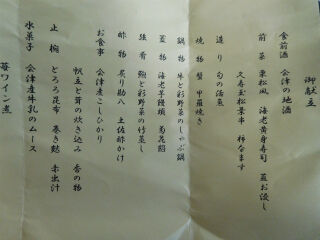 御献立
食前酒 会津の地酒
前菜 東松風 海老黄身寿司 豆お浸し
久寿玉松葉串 柿なます
造り 旬の活魚
焼物 蟹甲羅焼き
鍋物 牛と彩野菜のしゃぶ鍋
蓋物 海老芋饅頭 菊花餡
強肴 鰻と彩野菜の竹蒸し
酢物 炙り勘八 土佐酢かけ
お食事 会津産こしひかり
帆立と茸の炊き込み 香の物
止椀 とろろ昆布 巻き麩 赤出汁
水菓子 会津産牛乳のムース
苺ワイン煮